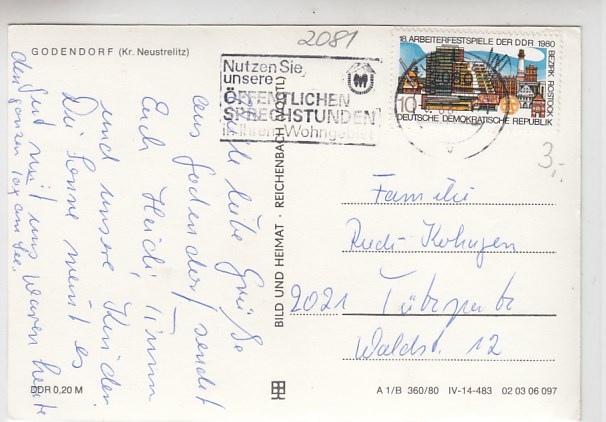 2081
GODENDORF (Kr. Neustrelitz)
Nutzen Sie
unsere
ÖFFENTLICHEN
SPRECHSTUNDEN
in Ihrem Wohngebiet
18. ARBEITERFESTSPIELE DER DDR 1980
BEZIRK ROSTOCK
10
DEUTSCHE DEMOKRATISCHE REPUBLIK
3,-
liebe Grüße
aus Godendorf sendet
Euch Heidi,
und unsere Kinder
Die Sonne meint es
gut mit uns waren heute
den ganzen Tag am See.
BILD UND HEIMAT · REICHENBACH (VOGTL)
Familie
Rudi Kohagen
2021 Tützpatz
Waldstr. 12
DDR 0,20 M
A 1/B 360/80 IV-14-483 02 03 06 097